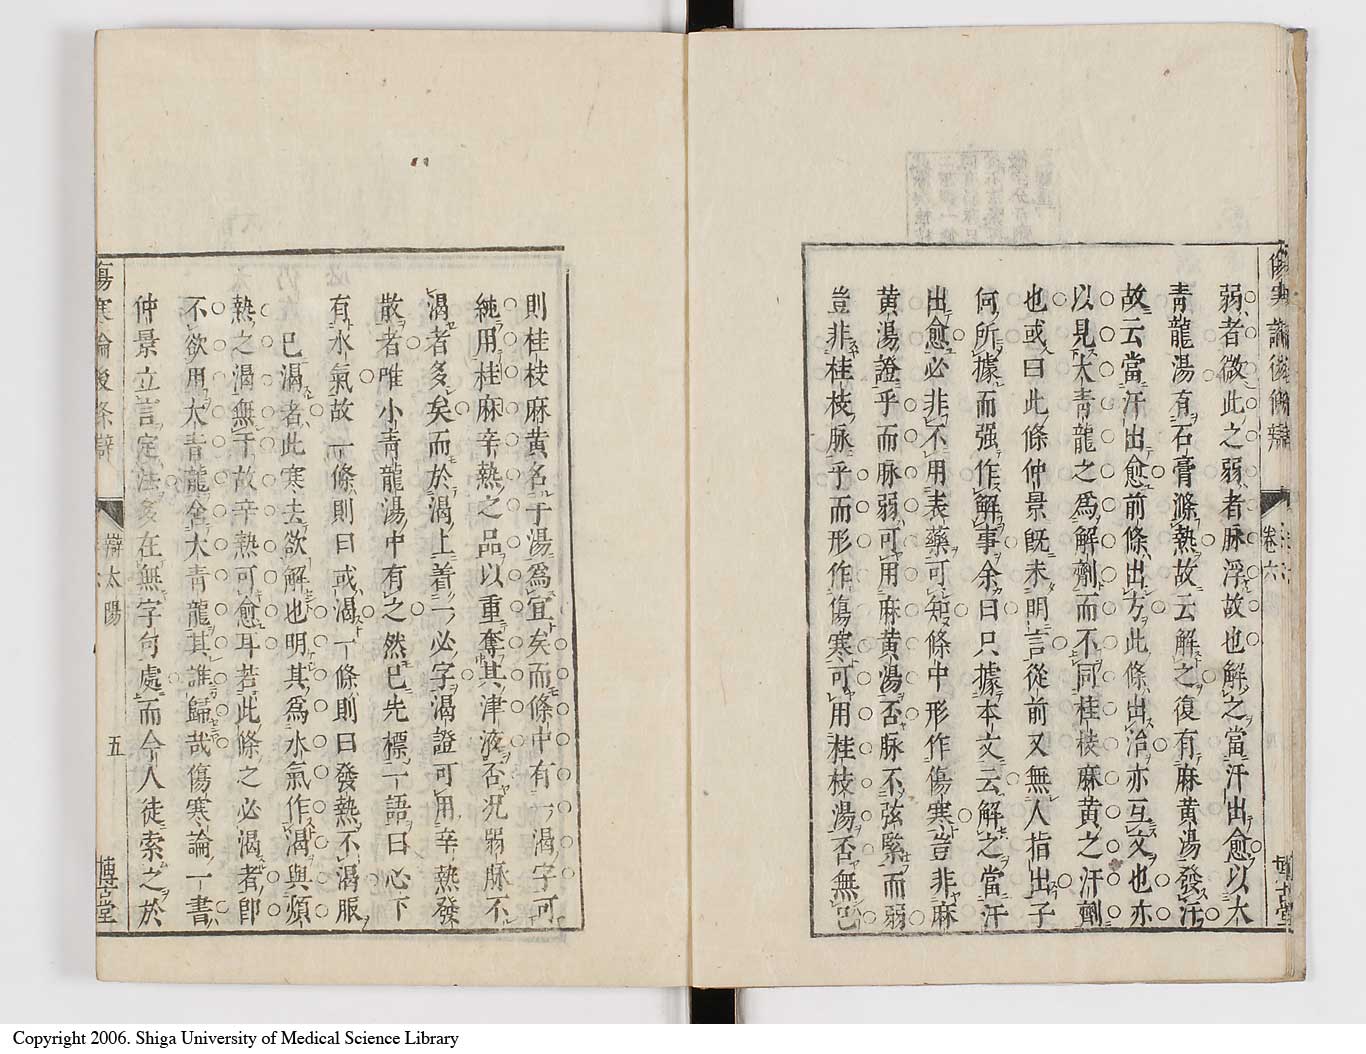 傷寒論後條辯
卷六
博古堂
弱者微此之弱者脉浮故也解之當汗出愈以大
青龍湯有石膏滌熱故云解之復有麻黄湯發汗
故云當汗出愈前條出方此條出治亦互文也亦
以見大青龍之爲解劑而不同桂枝麻黄之汗劑
也或曰此條仲景旣未明言從前又無人指出子
何所據而强作解事余曰只據本文云解之當汗
出愈必非不用表藥可知條中形作傷寒豈非麻
黄湯證乎而脉弱可用麻黄湯否脉不弦緊而弱
豈非桂枝脉乎而形作傷寒可用桂枝湯否無已
則桂枝麻黄名于湯爲宜矣而條中有一渴字可
純用桂麻辛熱之品以重奪其津液否况弱脉不
渴者多矣而於渴上着一必字渴證可用辛熱發
散者唯小青龍湯中有之然已先標一語曰心下
有水氣故一條則曰或渴一條則曰發熱不渴服
已渴者此寒去欲解也明其爲水氣作渴與煩
熱之渴無干故辛熱可愈耳若此條之必渴者卽
不欲用大青龍舍大青龍其誰歸哉傷寒論一書
仲景立言定法多在無字句處而今人徒索之於
傷寒論後條辯
辯太陽
五
博古堂
Copyright 2006. Shiga University of Medical Science Library